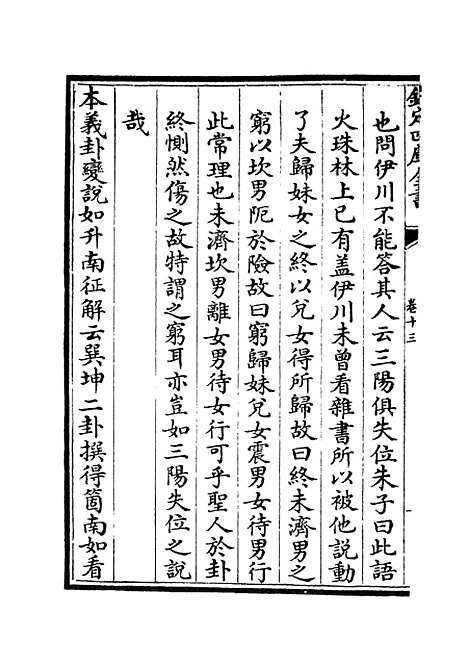 欽定四庫全書
卷十三
也問伊川不能答其人云三陽俱失位朱子曰此語
火珠林上已有盖伊川未曾看雜書所以被他說動
了夫歸妹女之終以兌女得所歸故曰終未濟男之
窮以坎男阨於險故曰窮歸妹兌女震男女待男行
此常理也未濟坎男離女男待女行可乎聖人於卦
終惻然傷之故特謂之窮耳亦豈如三陽失位之說
哉
本義卦變說如升南征解云巽坤二卦撰得箇南如看